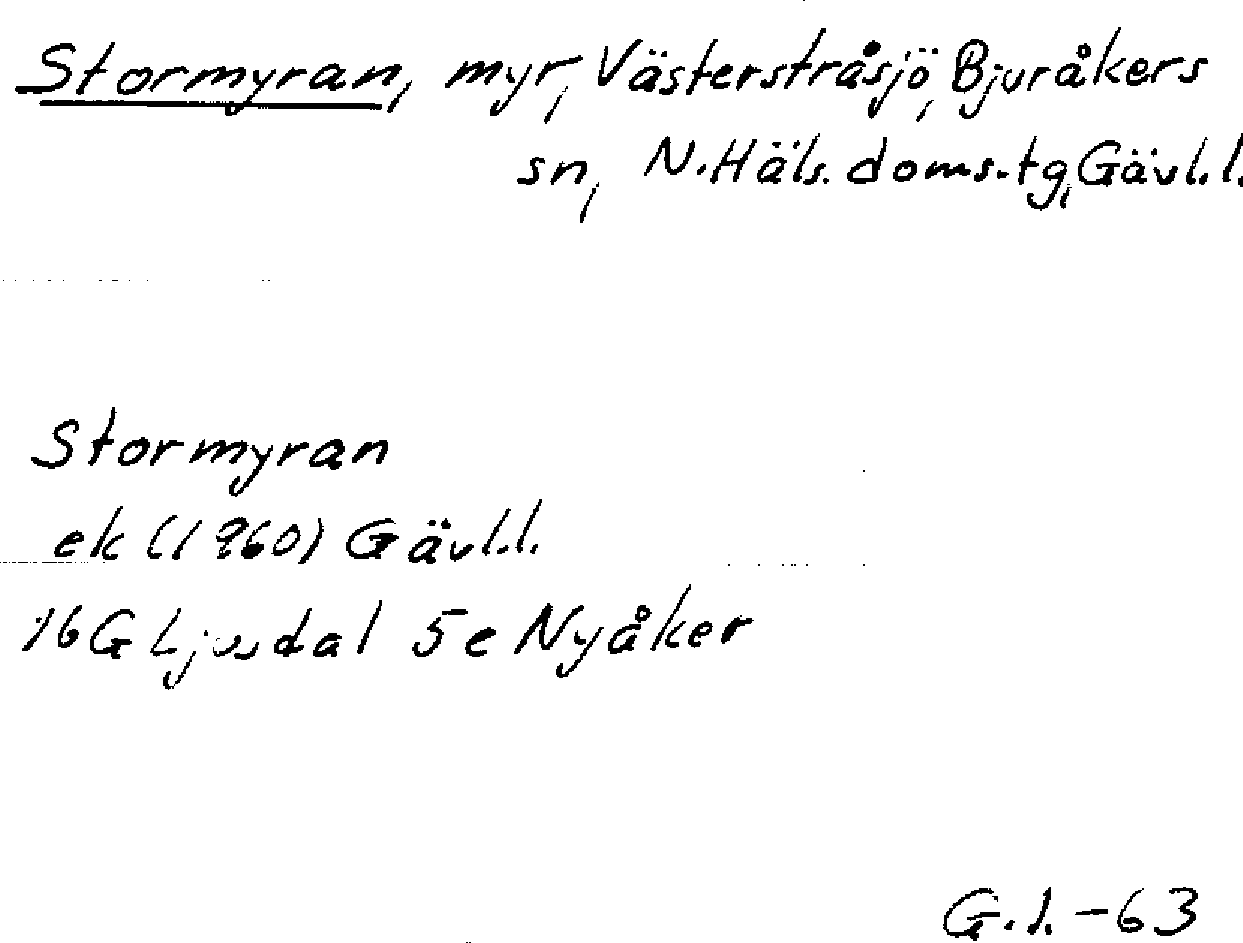 Stormyran, myr, Västerstråsjö, Bjuråkers
sn, N. Häls. doms. tg, Gävl. l.
Stormyran
ek (1960) Gävl. l.
16 G Ljusdal 5 e Nyåker
G. l. -63